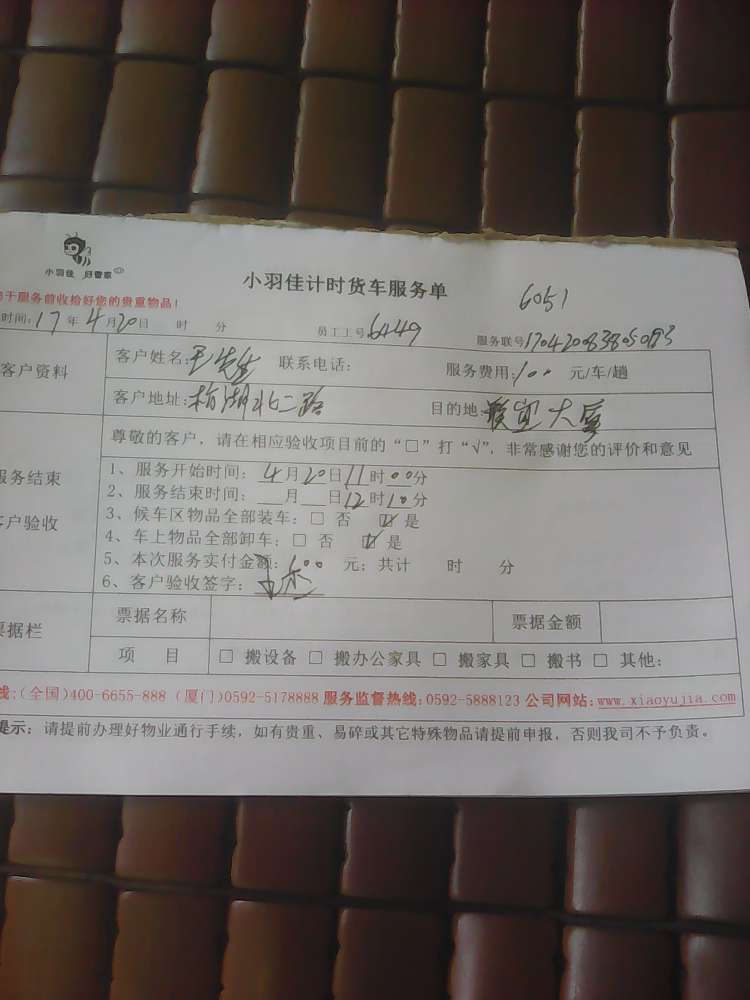 小羽佳 好管家
小羽佳计时货车服务单
6051
于服务前收拾好您的贵重物品!
时间:17年4月20日 时 分 员工工号6449 服务联号
客户资料
客户姓名:王先生 联系电话: 服务费用:100 元/车/趟
客户地址:湖北二路 目的地 大厦
尊敬的客户,请在相应验收项目前的“□”打“√”,非常感谢您的评价和意见
服务结束
客户验收
1、服务开始时间:4月20日11时00分
2、服务结束时间:__月__日12时10分
3、候车区物品全部装车:□ 否 ☑ 是
4、车上物品全部卸车:□ 否 ☑ 是
5、本次服务实付金额:100 元;共计 时 分
6、客户验收签字:
票据栏
票据名称 票据金额
项 目 □ 搬设备 □ 搬办公家具 □ 搬家具 □ 搬书 □ 其他:
线:(全国)400-6655-888 (厦门)0592-5178888 服务监督热线:0592-5888123 公司网站:www.xiaoyujia.com
提示:请提前办理好物业通行手续,如有贵重、易碎或其它特殊物品请提前申报,否则我司不予负责。